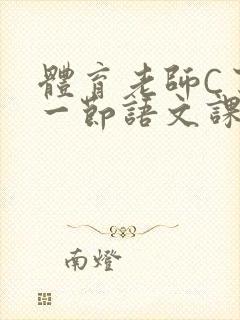 體育老師C
一節語文課
南燈